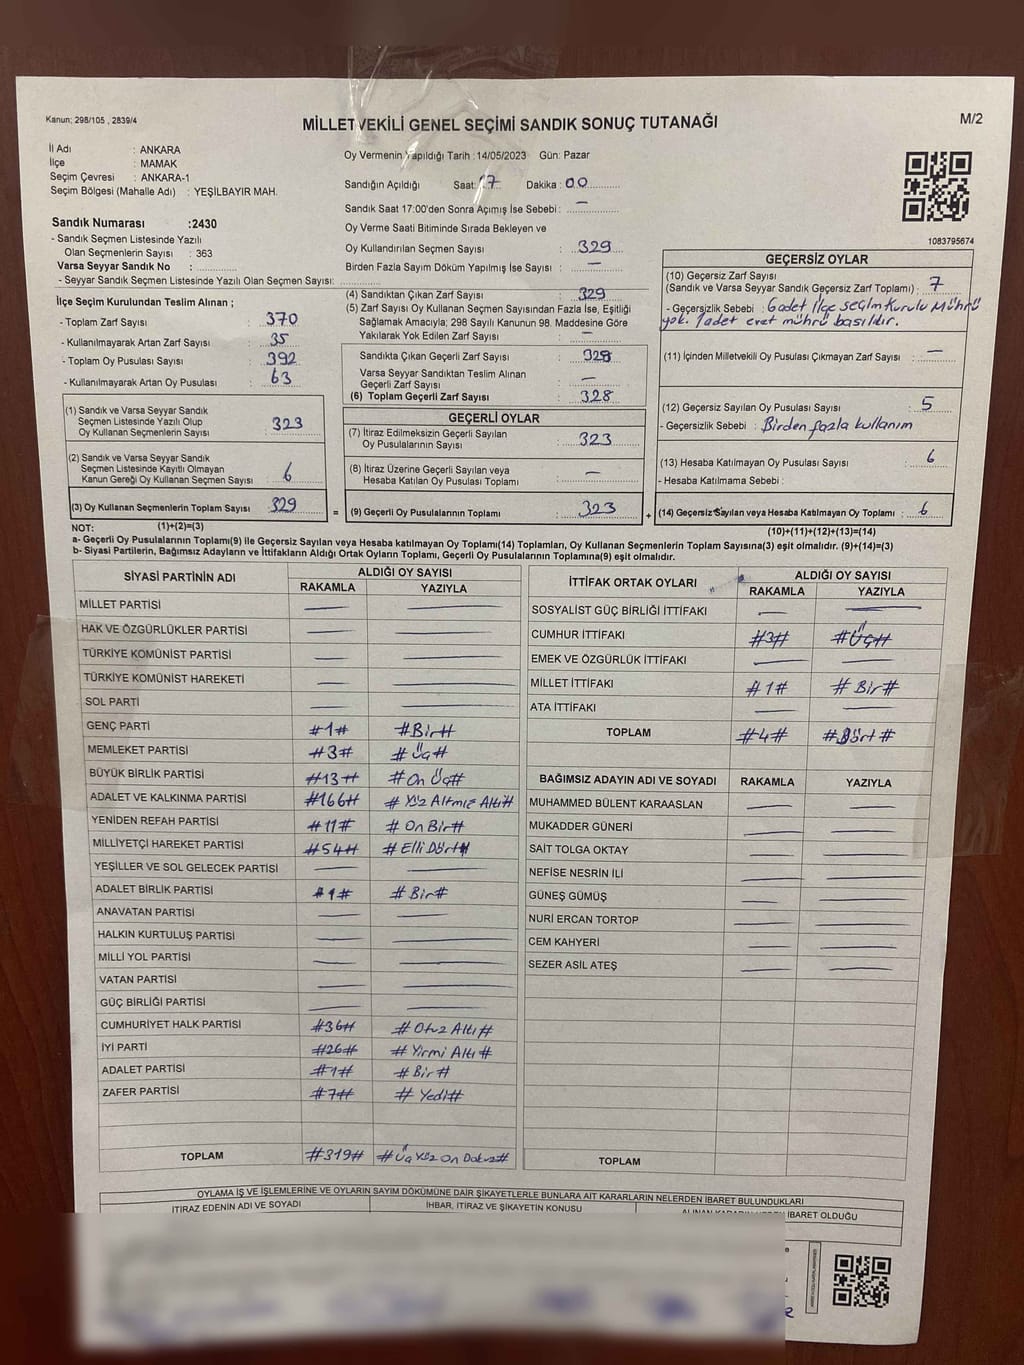 Kanun; 298/105 , 2839/4
MİLLETVEKİLİ GENEL SEÇİMİ SANDIK SONUÇ TUTANAĞI
M/2
İl Adı : ANKARA
İlçe : MAMAK
Seçim Çevresi : ANKARA-1
Seçim Bölgesi (Mahalle Adı) : YEŞİLBAYIR MAH.
Sandık Numarası :2430
- Sandık Seçmen Listesinde Yazılı
Olan Seçmenlerin Sayısı : 363
Varsa Seyyar Sandık No :
- Seyyar Sandık Seçmen Listesinde Yazılı Olan Seçmen Sayısı:
İlçe Seçim Kurulundan Teslim Alınan ;
- Toplam Zarf Sayısı : 370
- Kullanılmayarak Artan Zarf Sayısı : 35
- Toplam Oy Pusulası Sayısı : 392
- Kullanılmayarak Artan Oy Pusulası : 63
(1) Sandık ve Varsa Seyyar Sandık
Seçmen Listesinde Yazılı Olup
Oy Kullanan Seçmenlerin Sayısı : 323
(2) Sandık ve Varsa Seyyar Sandık
Seçmen Listesinde Kayıtlı Olmayan
Kanun Gereği Oy Kullanan Seçmen Sayısı : 6
(3) Oy Kullanan Seçmenlerin Toplam Sayısı : 329
Oy Vermenin Yapıldığı Tarih :14/05/2023 Gün: Pazar
Sandığın Açıldığı Saat: 17 Dakika : 00
Sandık Saat 17:00'den Sonra Açımış İse Sebebi : —
Oy Verme Saati Bitiminde Sırada Bekleyen ve
Oy Kullandırılan Seçmen Sayısı : 329
Birden Fazla Sayım Döküm Yapılmış İse Sayısı : —
(4) Sandıktan Çıkan Zarf Sayısı : 329
(5) Zarf Sayısı Oy Kullanan Seçmen Sayısından Fazla İse, Eşitliği
Sağlamak Amacıyla; 298 Sayılı Kanunun 98. Maddesine Göre
Yakılarak Yok Edilen Zarf Sayısı : —
Sandıkta Çıkan Geçerli Zarf Sayısı : 328
Varsa Seyyar Sandıktan Teslim Alınan
Geçerli Zarf Sayısı : —
(6) Toplam Geçerli Zarf Sayısı : 328
GEÇERLİ OYLAR
(7) İtiraz Edilmeksizin Geçerli Sayılan
Oy Pusulalarının Sayısı : 323
(8) İtiraz Üzerine Geçerli Sayılan veya
Hesaba Katılan Oy Pusulası Toplamı : —
= (9) Geçerli Oy Pusulalarının Toplamı : 323
1083795674
GEÇERSİZ OYLAR
(10) Geçersiz Zarf Sayısı
(Sandık ve Varsa Seyyar Sandık Geçersiz Zarf Toplamı) : 7
- Geçersizlik Sebebi : 6 adet İlçe Seçim Kurulu Mührü
yok. 1 adet evet mührü basılıdır.
(11) İçinden Milletvekili Oy Pusulası Çıkmayan Zarf Sayısı : —
(12) Geçersiz Sayılan Oy Pusulası Sayısı : 5
- Geçersizlik Sebebi : Birden fazla kullanım
(13) Hesaba Katılmayan Oy Pusulası Sayısı : 6
- Hesaba Katılmama Sebebi :
+ (14) Geçersiz Sayılan veya Hesaba Katılmayan Oy Toplamı : 6
NOT: (1)+(2)=(3)
(10)+(11)+(12)+(13)=(14)
a- Geçerli Oy Pusulalarının Toplamı(9) ile Geçersiz Sayılan veya Hesaba katılmayan Oy Toplamı(14) Toplamları, Oy Kullanan Seçmenlerin Toplam Sayısına(3) eşit olmalıdır. (9)+(14)=(3)
b- Siyasi Partilerin, Bağımsız Adayların ve İttifakların Aldığı Ortak Oyların Toplamı, Geçerli Oy Pusulalarının Toplamına(9) eşit olmalıdır.
SİYASİ PARTİNİN ADI ALDIĞI OY SAYISI
RAKAMLA YAZIYLA
MİLLET PARTİSİ — —
HAK VE ÖZGÜRLÜKLER PARTİSİ — —
TÜRKİYE KOMÜNİST PARTİSİ — —
TÜRKİYE KOMÜNİST HAREKETİ — —
SOL PARTİ — —
GENÇ PARTİ #1# #Bir#
MEMLEKET PARTİSİ #3# #Üç#
BÜYÜK BİRLİK PARTİSİ #13# #On Üç#
ADALET VE KALKINMA PARTİSİ #166# #Yüz Altmış Altı#
YENİDEN REFAH PARTİSİ #11# #On Bir#
MİLLİYETÇİ HAREKET PARTİSİ #54# #Elli Dört#
YEŞİLLER VE SOL GELECEK PARTİSİ — —
ADALET BİRLİK PARTİSİ #1# #Bir#
ANAVATAN PARTİSİ — —
HALKIN KURTULUŞ PARTİSİ — —
MİLLİ YOL PARTİSİ — —
VATAN PARTİSİ — —
GÜÇ BİRLİĞİ PARTİSİ — —
CUMHURİYET HALK PARTİSİ #36# #Otuz Altı#
İYİ PARTİ #26# #Yirmi Altı#
ADALET PARTİSİ #1# #Bir#
ZAFER PARTİSİ #7# #Yedi#
TOPLAM #319# #Üç Yüz On Dokuz#
İTTİFAK ORTAK OYLARI ALDIĞI OY SAYISI
RAKAMLA YAZIYLA
SOSYALİST GÜÇ BİRLİĞİ İTTİFAKI — —
CUMHUR İTTİFAKI #3# #Üç#
EMEK VE ÖZGÜRLÜK İTTİFAKI — —
MİLLET İTTİFAKI #1# #Bir#
ATA İTTİFAKI — —
TOPLAM #4# #Dört#
BAĞIMSIZ ADAYIN ADI VE SOYADI RAKAMLA YAZIYLA
MUHAMMED BÜLENT KARAASLAN — —
MUKADDER GÜNERİ — —
SAİT TOLGA OKTAY — —
NEFİSE NESRİN İLİ — —
GÜNEŞ GÜMÜŞ — —
NURİ ERCAN TORTOP — —
CEM KAHYERİ — —
SEZER ASİL ATEŞ — —
TOPLAM
OYLAMA İŞ VE İŞLEMLERİNE VE OYLARIN SAYIM DÖKÜMÜNE DAİR ŞİKAYETLERLE BUNLARA AİT KARARLARIN NELERDEN İBARET BULUNDUKLARI
İTİRAZ EDENİN ADI VE SOYADI İHBAR, İTİRAZ VE ŞİKAYETİN KONUSU ALINAN KARARIN NEDEN İBARET OLDUĞU